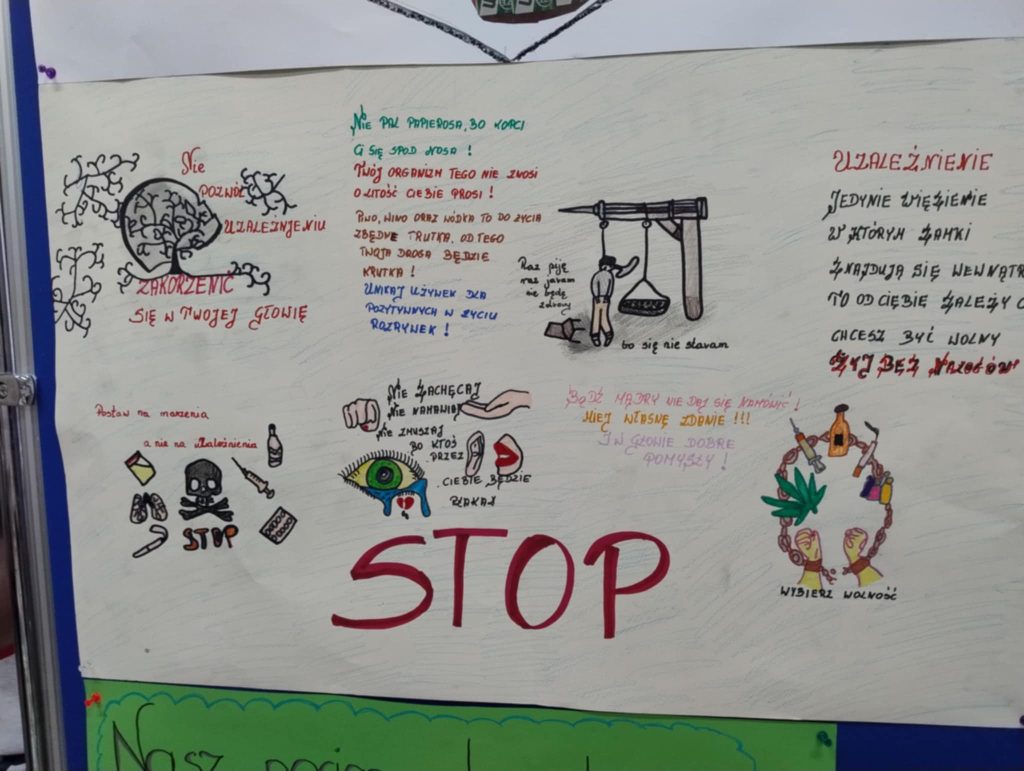 Nie
POZWÓL
UZALEŻNIENIU
ZAKORZENIĆ
SIĘ W TWOJEJ GŁOWIE
NIE PAL PAPIEROSA, BO KOPCI
CI SIĘ SPOD NOSA !
TWÓJ ORGANIZM TEGO NIE ZNOSI
O LITOŚĆ CIEBIE PROSI !
PIWO, WINO ORAZ WÓDKA TO DO ŻYCIA
ZBĘDNE TRUTKA, OD TEGO
TWOJA DROGA BĘDZIE
KRUTKA !
UNIKAJ UŻYWEK DLA
POZYTYWNYCH W ŻYCIU
ROZRYWEK !
Raz piję
raz jaram
nie będę
zdrowy
bo się nie staram
UZALEŻNIENIE
JEDYNIE WIĘZIENIE
W KTÓRYM ZAMKI
ZNAJDUJĄ SIĘ WEWNĄTR
TO OD CIEBIE ZALEŻY C
CHCESZ BYĆ WOLNY
ŻYJ BEZ NAŁOGÓW
Postaw na marzenia
a nie na uzależnienia
STOP
NIE ZACHĘCAJ
NIE NAMAWIAJ
NIE ZMUSZAJ
BO KTOŚ
PRZEZ
CIEBIE BĘDZIE
PŁAKAŁ
BĄDŹ MĄDRY NIE DAJ SIĘ NAMÓWIĆ !
MIEJ WŁASNE ZDANIE !!!
I W GŁOWIE DOBRE
POMYSŁY !
WYBIERZ WOLNOŚĆ
STOP
Nasz